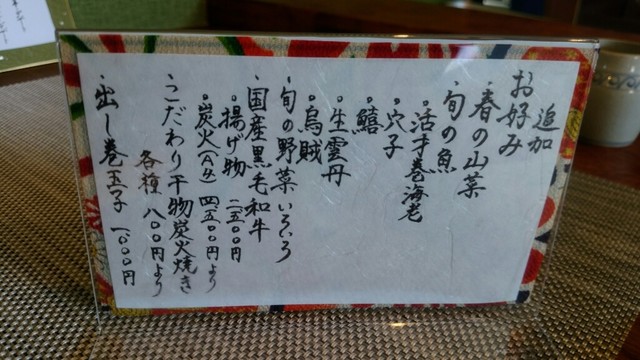 追加
お好み
・春の山菜
・旬の魚
・活才巻海老
・穴子
・鱚
・生雲丹
・烏賊
・旬の野菜いろいろ
・国産黒毛和牛
・揚げ物 二五〇〇円
・炭火(A5) 四五〇〇円より
・こだわり干物炭火焼き
各種 八〇〇円より
・出し巻玉子 一〇〇〇円